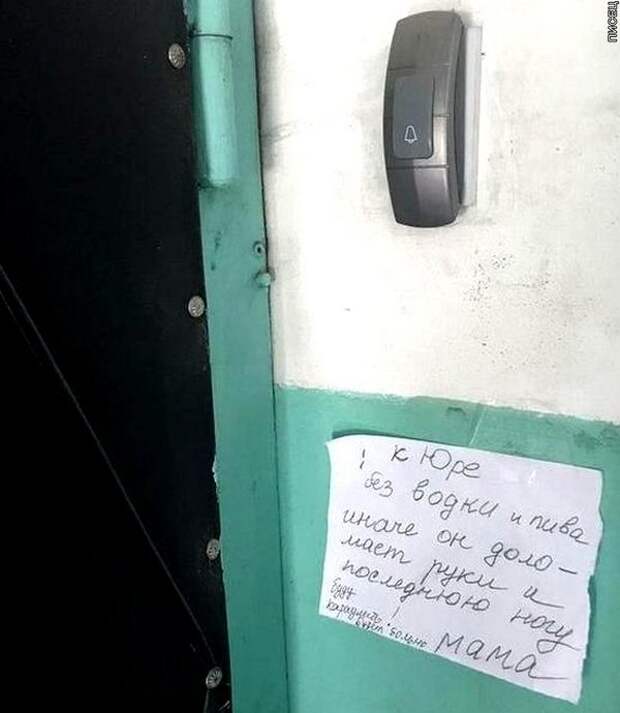 писец
! к Юре
без водки и пива
иначе он доло-
мает руки и
последнюю ногу
буду !
будет больно
мама